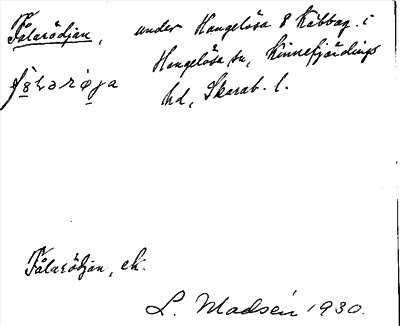 Fålarödjan, under Hangelösa 8 Kåbbag. i
Hangelösa sn, Kinnefjärdings
hd, Skarab. l.
Fålarödjan, ek.
L. Madsén 1930.